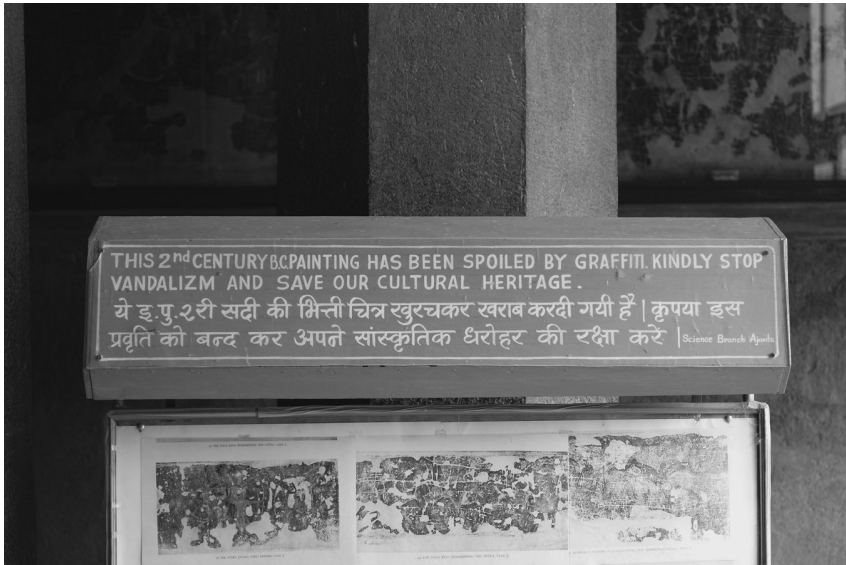 THIS 2nd CENTURY B.C. PAINTING HAS BEEN SPOILED BY GRAFFITI. KINDLY STOP
VANDALIZM AND SAVE OUR CULTURAL HERITAGE.
ये इ.पु.२री सदी की भित्ती चित्र खुरचकर खराब करदी गयी है | कृपया इस
प्रवृति को बन्द कर अपने सांस्कृतिक धरोहर की रक्षा करे |
Science Branch Ajanta